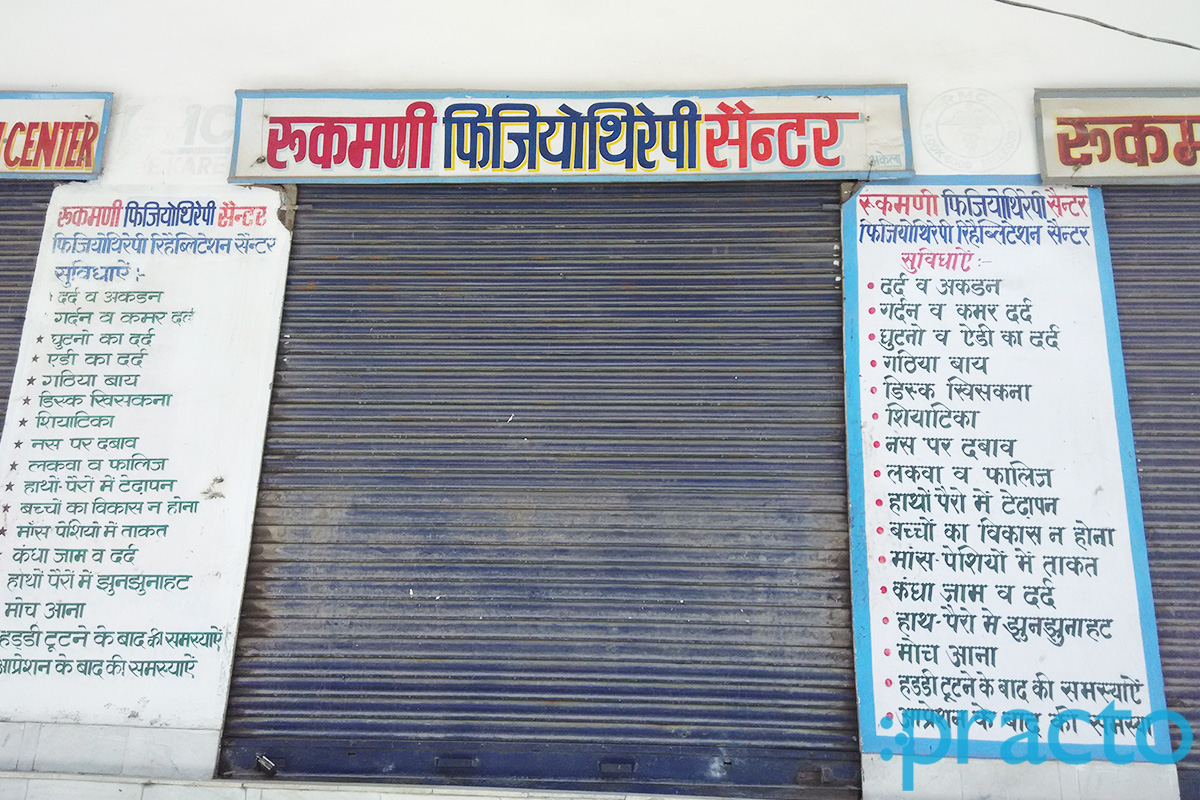 -CENTER
रूकमणी फिजियोथिरेपी सैन्टर
रूकम
रूकमणी फिजियोथिरेपी सैन्टर
फिजियोथिरेपी रिहैब्लिटेशन सैन्टर
सुविधाऐं :-
दर्द व अकडन
गर्दन व कमर दर्द
घुटनो का दर्द
एडी का दर्द
गठिया बाय
डिस्क खिसकना
शियाटिका
नस पर दबाव
लकवा व फालिज
हाथों-पैरों में टेदापन
बच्चों का विकास न होना
मांस-पेशियो में ताकत
कंधा जाम व दर्द
हाथों पैरों में झुनझुनाहट
मोच आना
हड्डी टूटने के बाद की समस्याऐं
आप्रेशन के बाद की समस्याऐं
रूकमणी फिजियोथिरेपी सैन्टर
फिजियोथिरेपी रिहैब्लिटेशन सैन्टर
सुविधाऐं :-
दर्द व अकडन
गर्दन व कमर दर्द
घुटनो व ऐडी का दर्द
गठिया बाय
डिस्क खिसकना
शियाटिका
नस पर दबाव
लकवा व फालिज
हाथों पैरो में टेदापन
बच्चों का विकास न होना
मांस-पेशियों में ताकत
कंधा जाम व दर्द
हाथ-पैरो मे झुनझुनाहट
मोच आना
हडडी टूटने के बाद की समस्याऐं
आप्रेशन के बाद की समस्या
practo